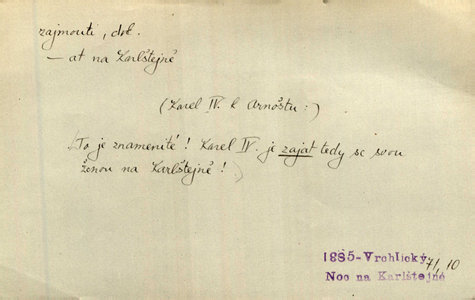 zajmouti, dok.
— at na Karlštejně
(Karel IV. k Arnoštu:)
To je znamenité! Karel IV. je zajat tedy se svou
ženou na Karlštejně!
1885-Vrchlický
71, 10
Noc na Karlštejně